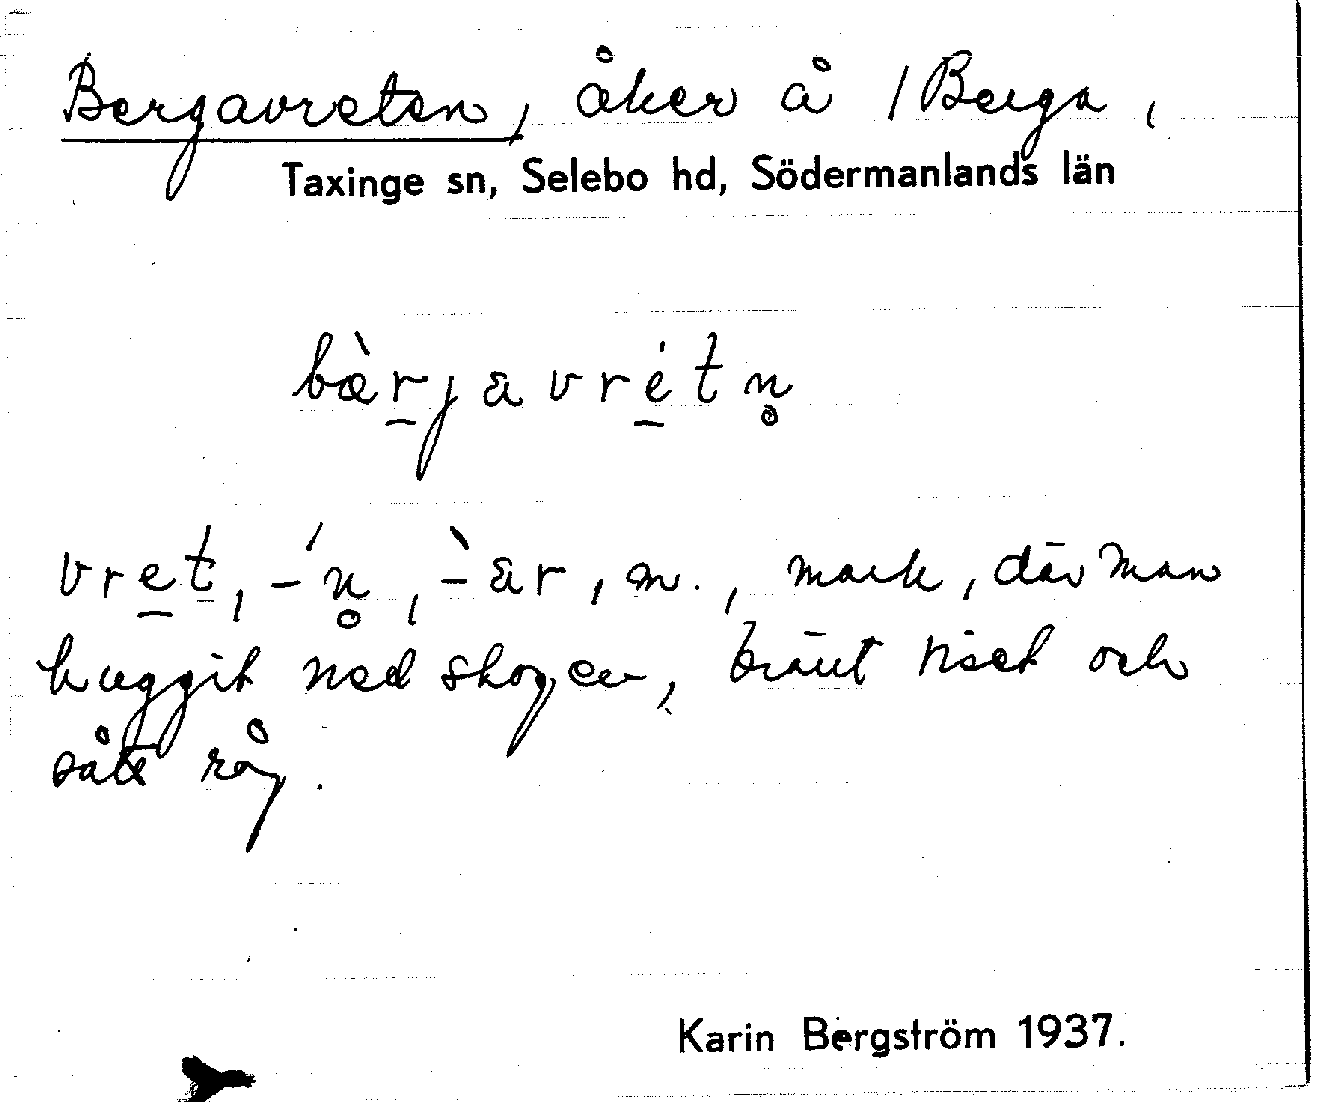 Bergavreten, åker å /Berga,
Taxinge sn, Selebo hd, Södermanlands län
bæ̀r̲javré̲tn̥
vre̲t, -́n̥, -̀ar, m., mark, där man
huggit ned skogen, bränt riset och
sått råg.
Karin Bergström 1937.